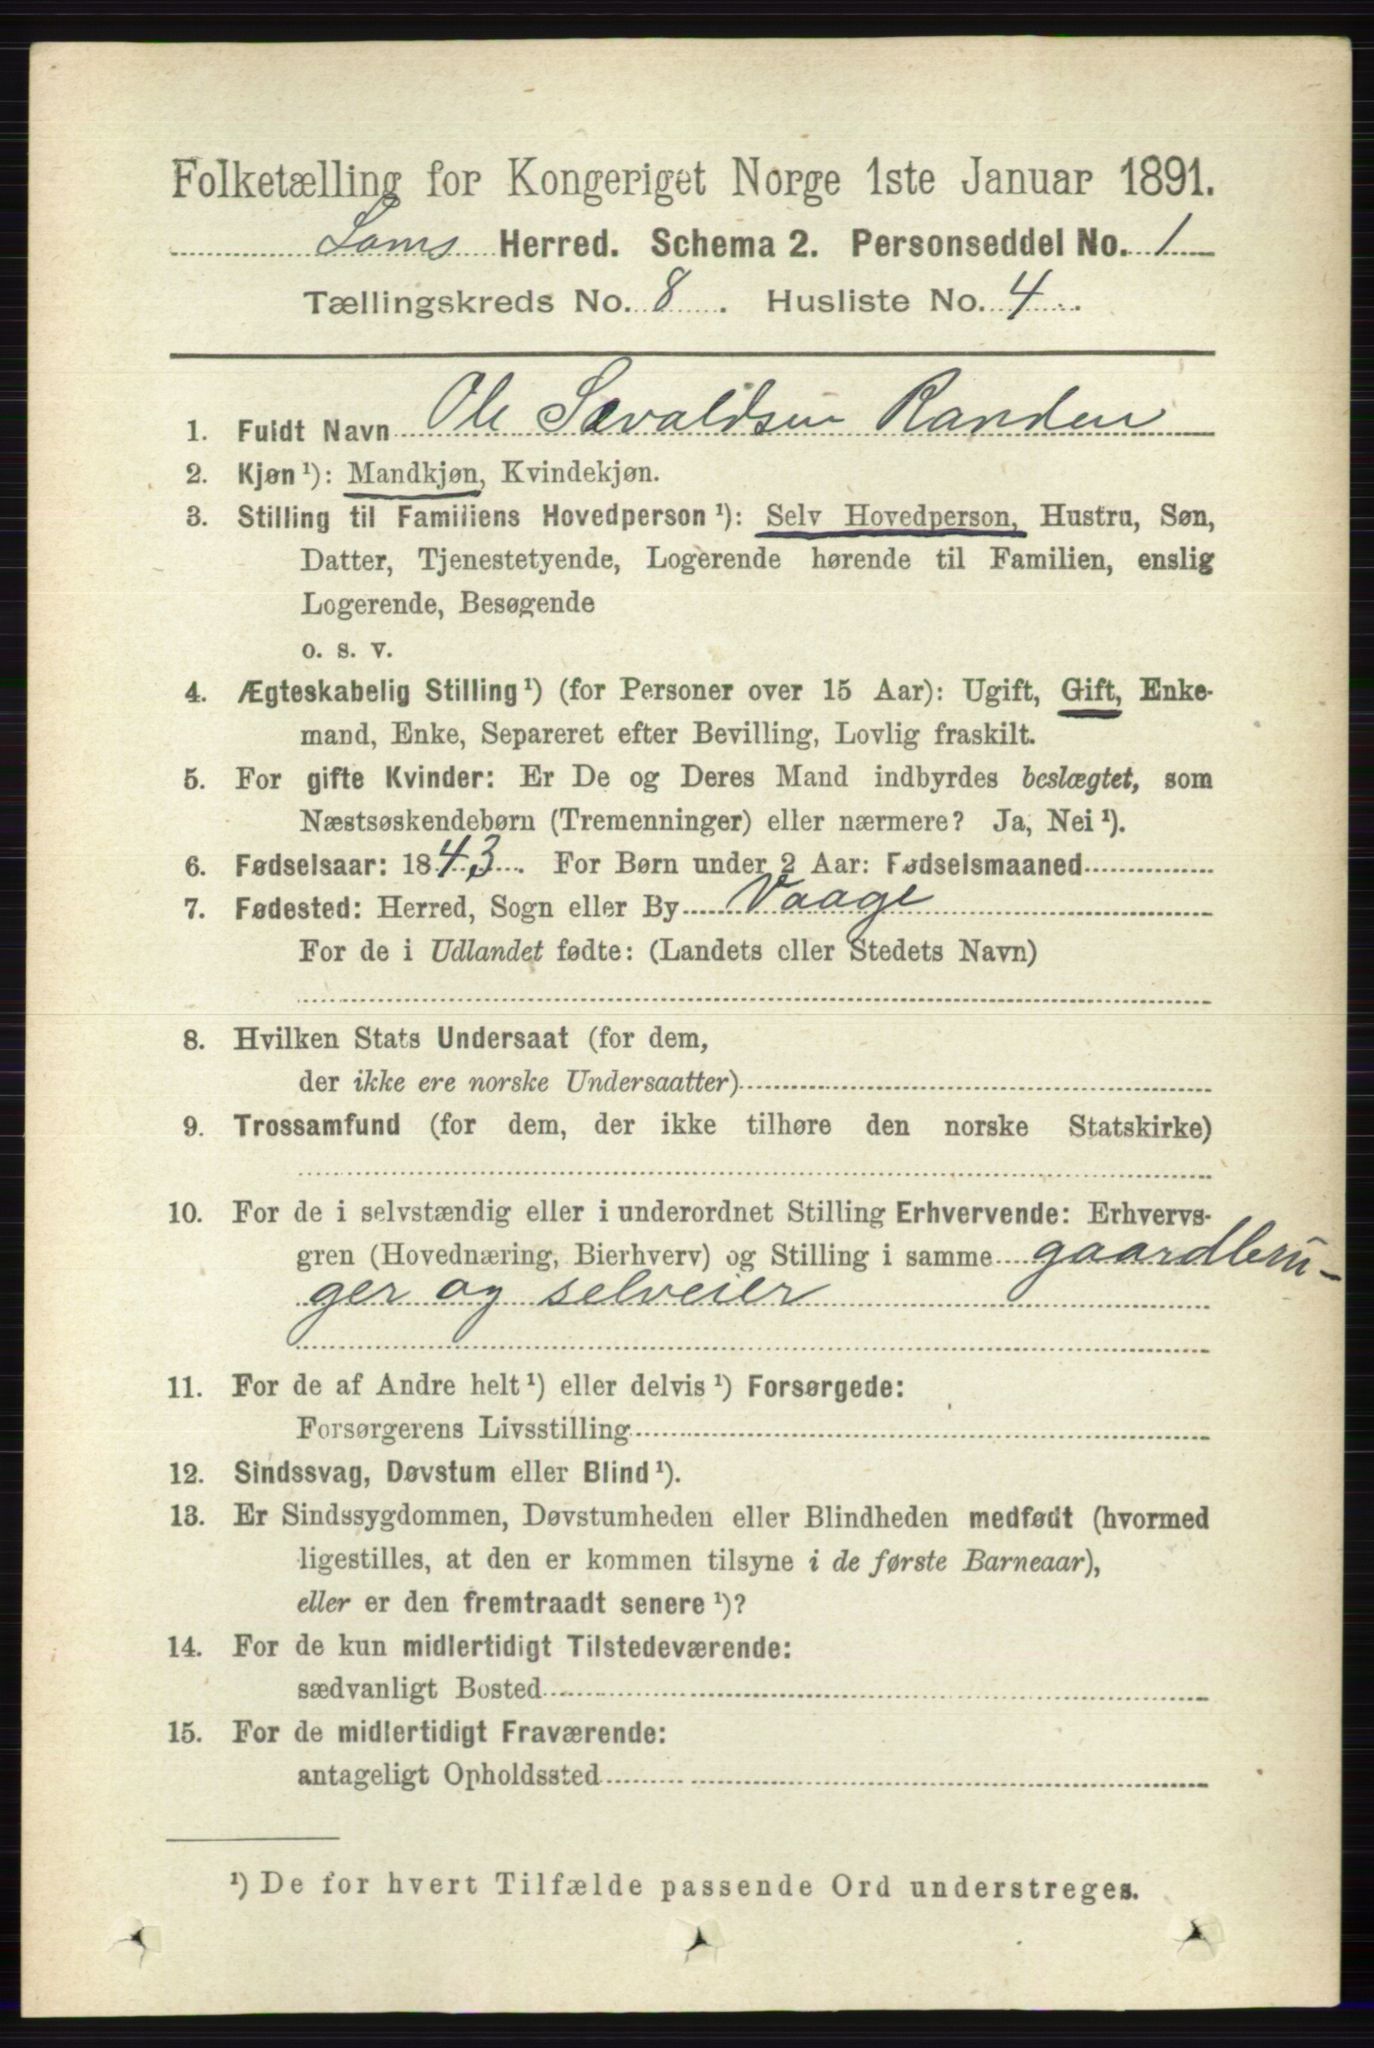 Folketælling for Kongeriget Norge 1ste Januar 1891.
Loms Herred. Schema 2. Personseddel No. 1
Tællingskreds No. 8. Husliste No. 4.
1. Fuldt Navn Ole Sevaldsen Randen
2. Kjøn¹): Mandkjøn, Kvindekjøn.
3. Stilling til Familiens Hovedperson¹): Selv Hovedperson, Hustru, Søn,
Datter, Tjenestetyende, Logerende hørende til Familien, enslig
Logerende, Besøgende
o. s. v.
4. Ægteskabelig Stilling¹) (for Personer over 15 Aar): Ugift, Gift, Enke-
mand, Enke, Separeret efter Bevilling, Lovlig fraskilt.
5. For gifte Kvinder: Er De og Deres Mand indbyrdes beslægtet, som
Næstsøskendebørn (Tremenninger) eller nærmere? Ja, Nei¹).
6. Fødselsaar: 1843. For Børn under 2 Aar: Fødselsmaaned
7. Fødested: Herred, Sogn eller By Vaage
For de i Udlandet fødte: (Landets eller Stedets Navn)
8. Hvilken Stats Undersaat (for dem,
der ikke ere norske Undersaatter)
9. Trossamfund (for dem, der ikke tilhøre den norske Statskirke)
10. For de i selvstændig eller i underordnet Stilling Erhvervende: Erhvervs-
gren (Hovednæring, Bierhverv) og Stilling i samme gaardbru-
ger og selveier
11. For de af Andre helt¹) eller delvis¹) Forsørgede:
Forsørgerens Livsstilling
12. Sindssvag, Døvstum eller Blind¹).
13. Er Sindssygdommen, Døvstumheden eller Blindheden medfødt (hvormed
ligestilles, at den er kommen tilsyne i de første Barneaar),
eller er den fremtraadt senere¹)?
14. For de kun midlertidigt Tilstedeværende:
sædvanligt Bosted
15. For de midlertidigt Fraværende:
antageligt Opholdssted
¹) De for hvert Tilfælde passende Ord understreges.